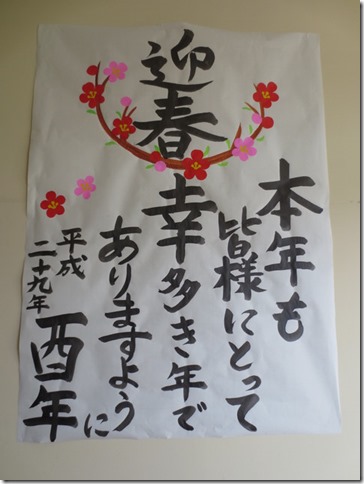 迎春
本年も
皆様にとって
幸多き年で
ありますように
平成
二十九年
酉年